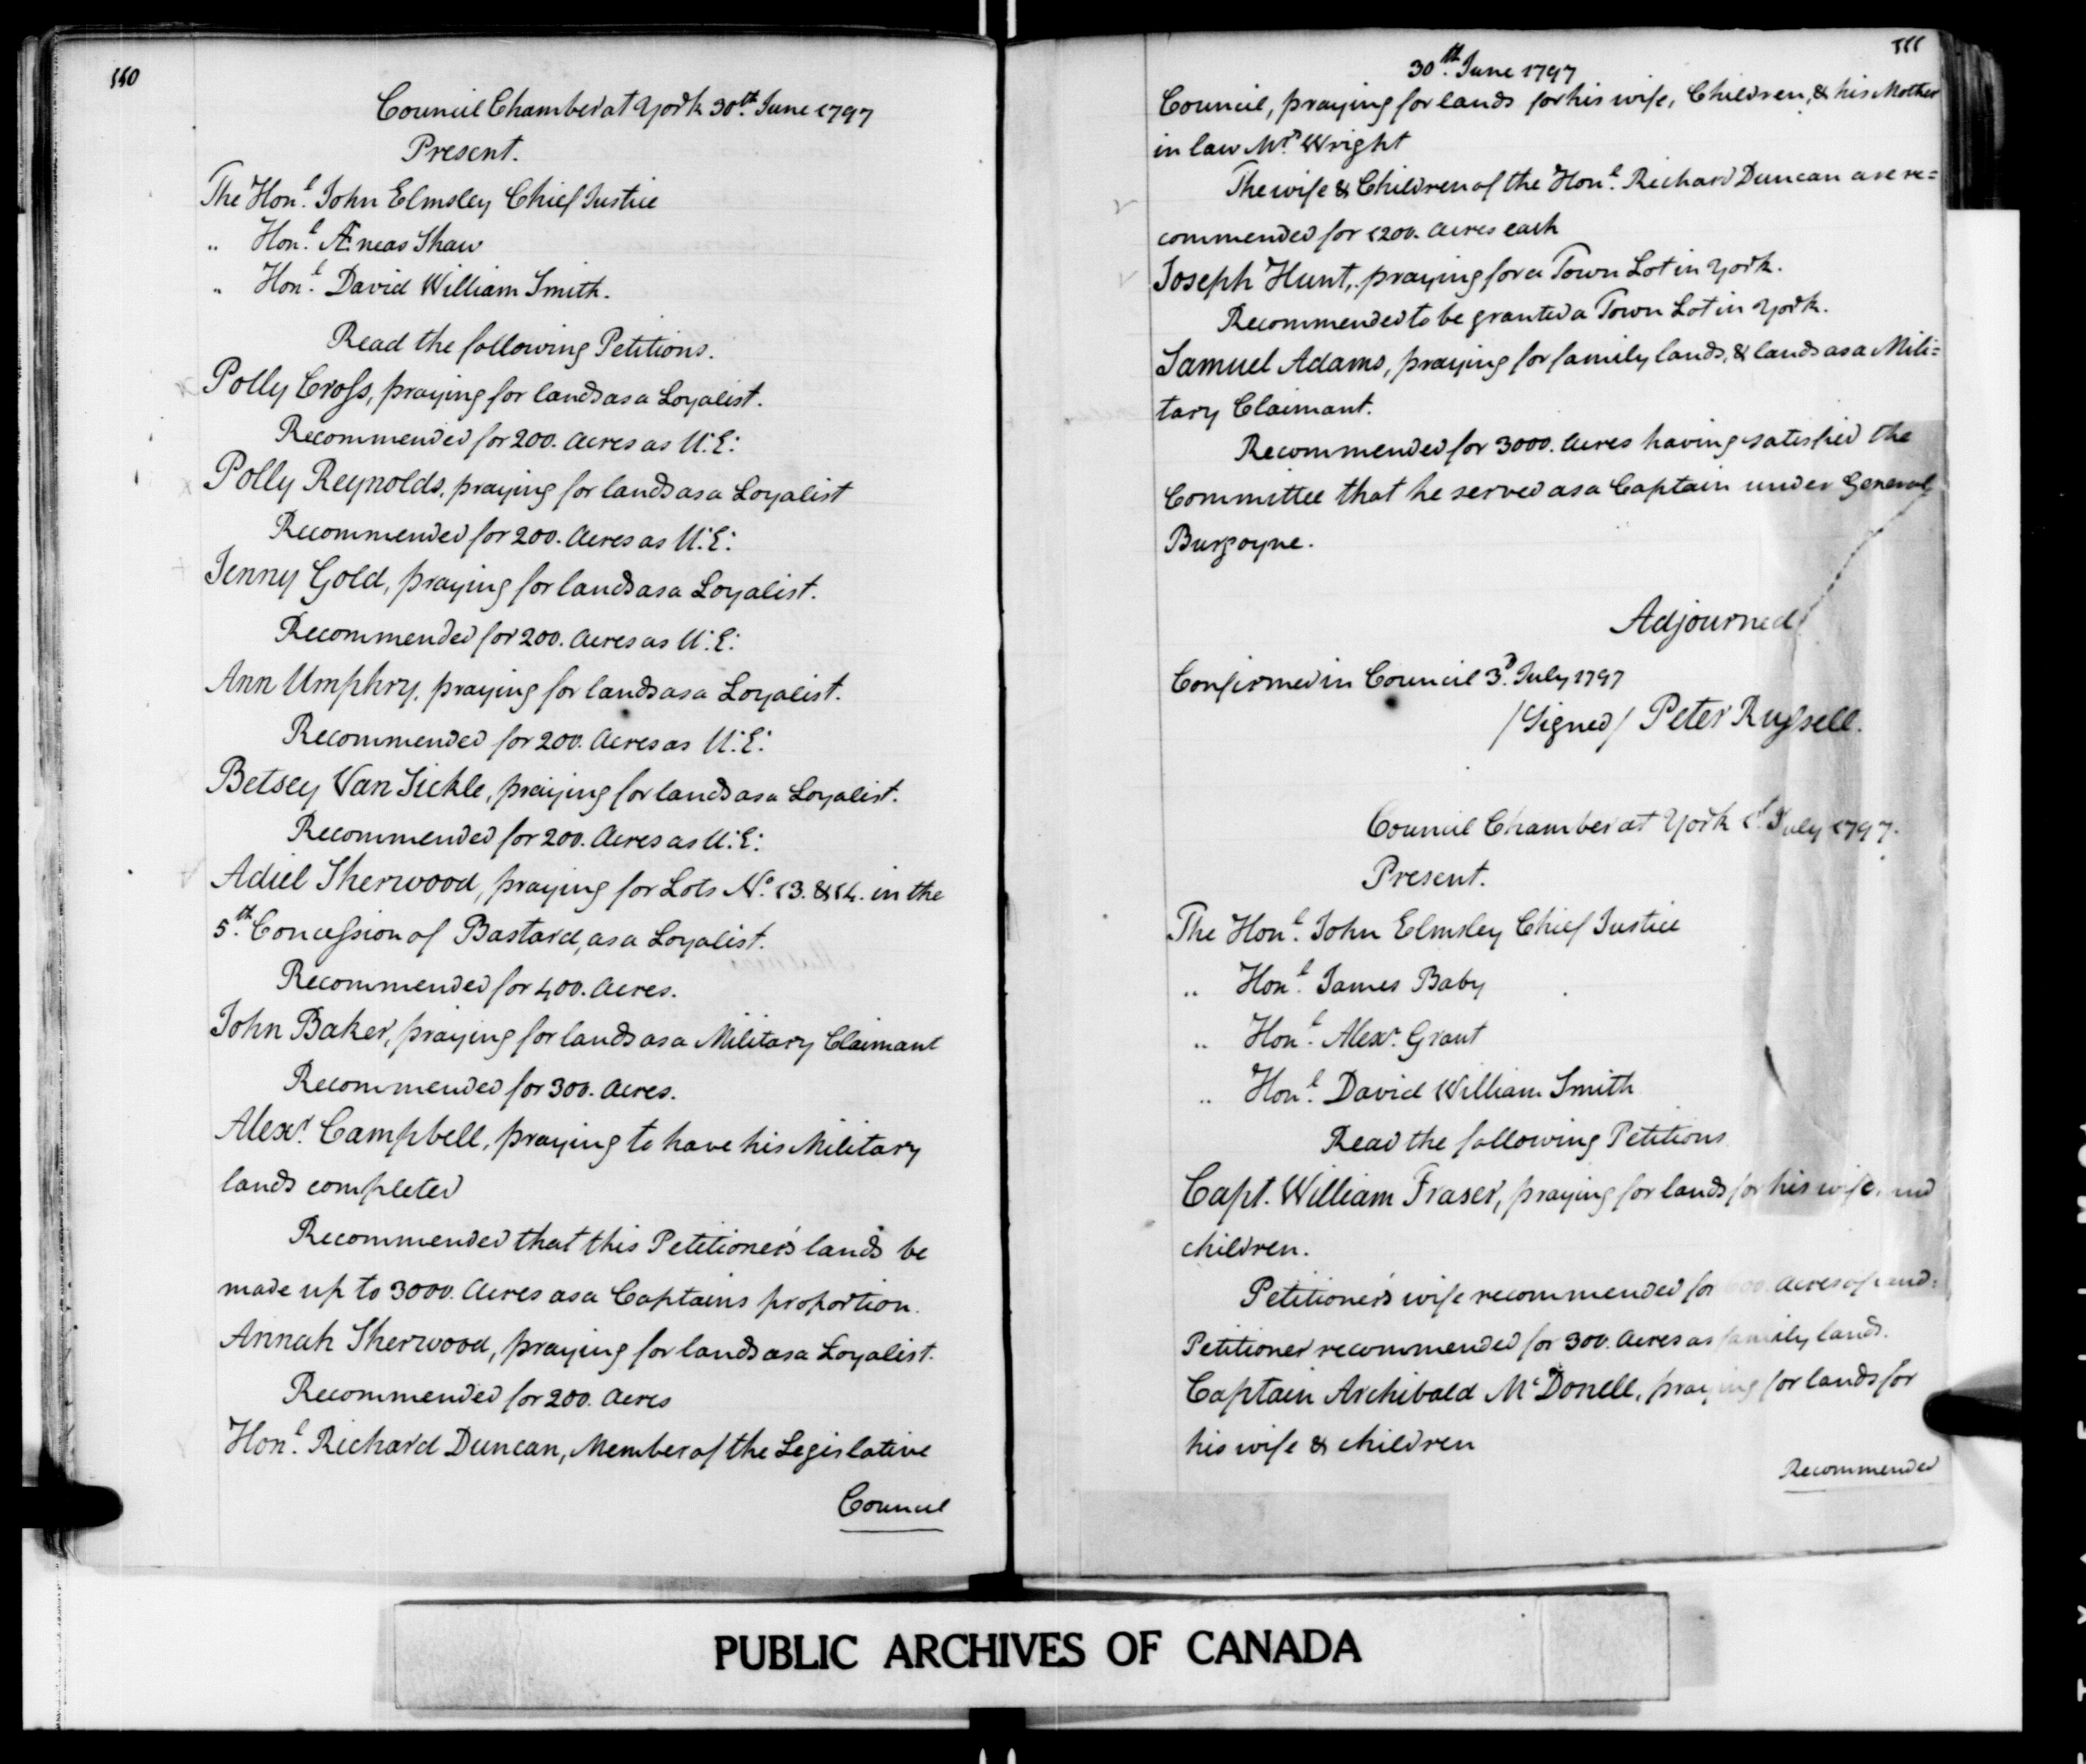 110
Council Chamber at York 30th. June 1797
Present.
The Honl. John Elmsley Chief Justice
" Honl. Æneas Shaw
" Honl. David William Smith.
Read the following Petitions.
Polly Cross, praying for lands as a Loyalist.
Recommended for 200. Acres as U:E:
Polly Reynolds, praying for lands as a Loyalist
Recommended for 200. Acres as U:E:
Jenny Gold, praying for lands as a Loyalist.
Recommended for 200. Acres as U:E:
Ann Umphry, praying for lands as a Loyalist.
Recommended for 200. Acres as U:E:
Betsey Van Sickle, praying for lands as a Loyalist.
Recommended for 200. Acres as U:E:
Adiel Sherwood, praying for Lots No. 13. & 14. in the
5th. Concession of Bastard, as a Loyalist.
Recommended for 400. Acres.
John Baker, praying for lands as a Military Claimant
Recommended for 300. Acres.
Alexr. Campbell, praying to have his Military
lands completed
Recommended that this Petitioner's lands be
made up to 3000. Acres as a Captains proportion.
Annah Sherwood, praying for lands as a Loyalist.
Recommended for 200. Acres
Honl. Richard Duncan, Member of the Legislative
Council
111
30th. June 1797
Council, praying for lands for his wife, Children, & his Mother
in law Mrs. Wright
The wife & Children of the Honl. Richard Duncan are re=
commended for 1200. Acres each
Joseph Hunt, praying for a Town Lot in York.
Recommended to be granted a Town Lot in York.
Samuel Adams, praying for family lands, & lands as a Mili=
tary Claimant.
Recommended for 3000. Acres having satisfied the
Committee that he served as a Captain under General
Burgoyne.
Adjourned
Confirmed in Council 3d. July 1797
/Signed/ Peter Russell.
Council Chamber at York 1st July 1797.
Present.
The Honl. John Elmsley Chief Justice
" Honl. James Baby
" Honl. Alexr. Grant
" Honl. David William Smith
Read the following Petitions
Capt. William Fraser, praying for lands for his wife and
children.
Petitioner's wife recommended for Acres of land.
Petitioner recommended for 300. Acres as family lands.
Captain Archibald McDonell, praying for lands for
his wife & children
Recommended
PUBLIC ARCHIVES OF CANADA